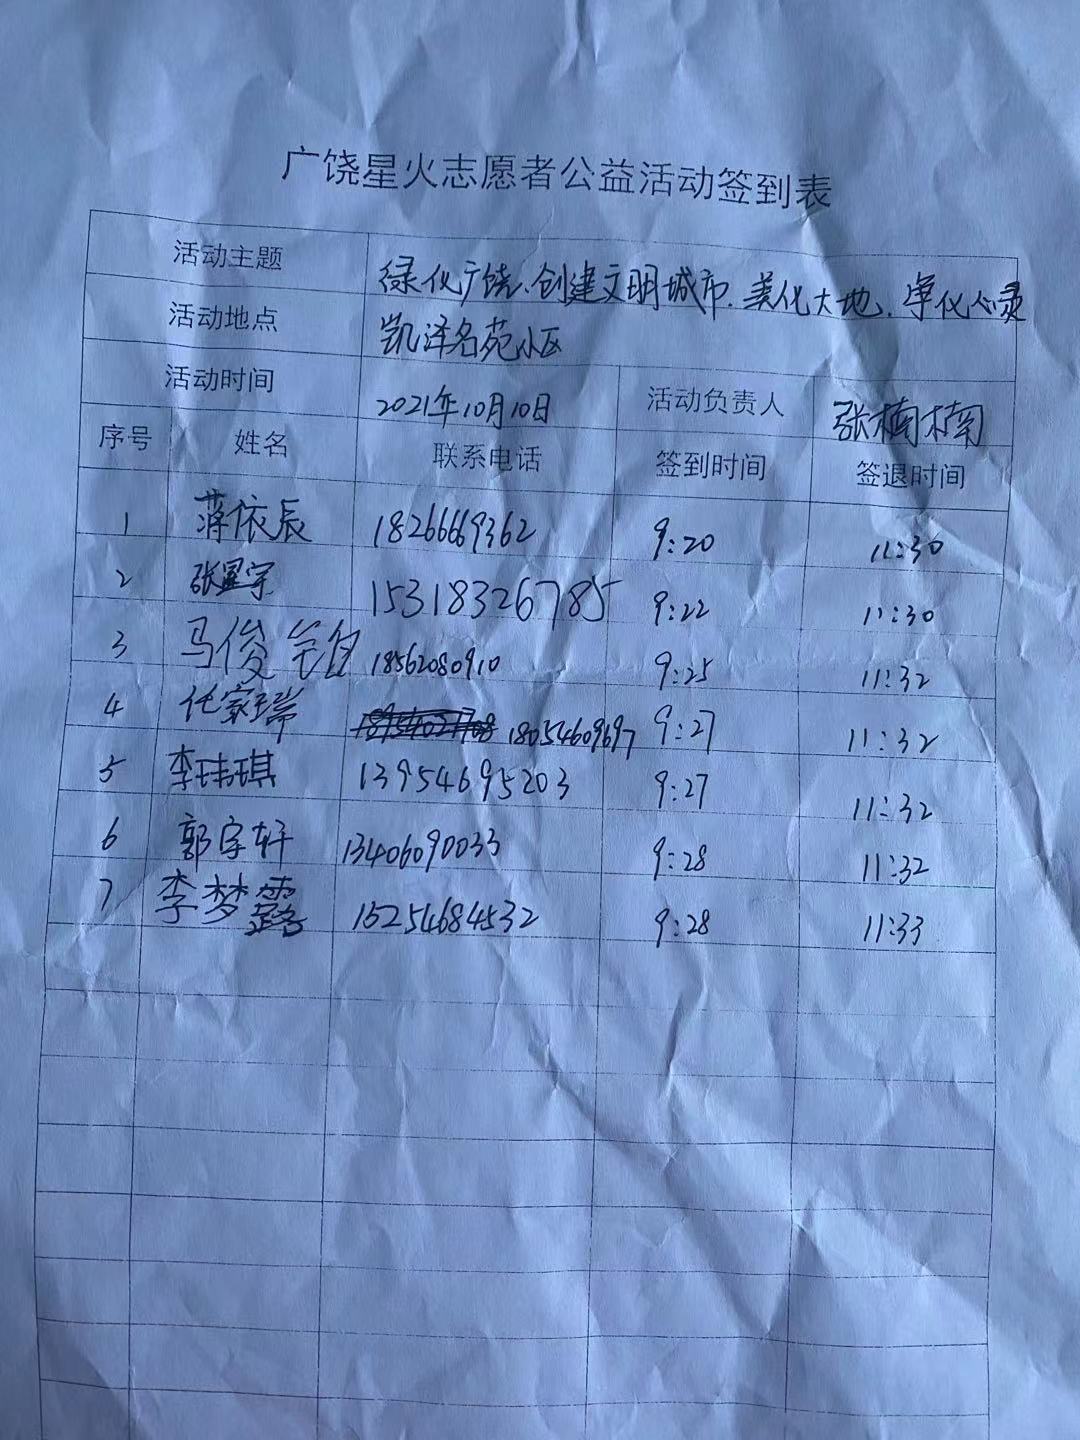 广饶星火志愿者公益活动签到表
活动主题 绿化广饶、创建文明城市、美化大地、净化心灵
活动地点 凯泽名苑小区
活动时间 2021年10月10日 活动负责人 张楠楠
序号 姓名 联系电话 签到时间 签退时间
1 蒋依辰 18266669362 9:20 11:30
2 张星宇 15318326785 9:22 11:30
3 马俊 18562080910 9:25 11:32
4 任家瑞 18054609697 9:27 11:32
5 李玮琪 13954695203 9:27 11:32
6 郭宇轩 13406090033 9:28 11:32
7 李梦露 15254684532 9:28 11:33